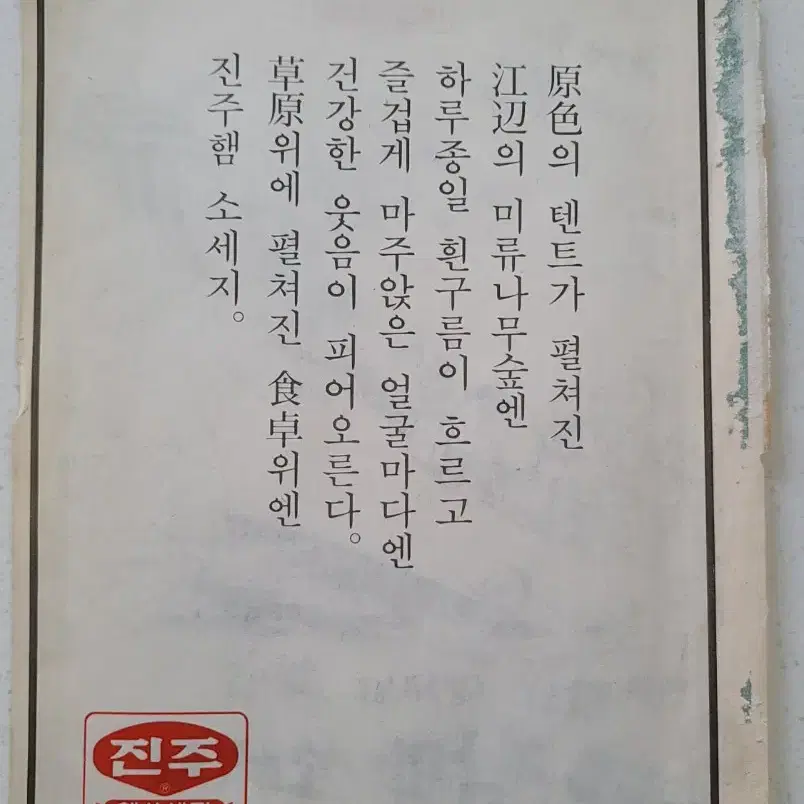 原色의 텐트가 펼쳐진
江辺의 미류나무숲엔
하루종일 흰구름이 흐르고
즐겁게 마주앉은 얼굴마다엔
건강한 웃음이 피어오른다。
草原위에 펼쳐진 食卓위엔
진주햄 소세지。
진주
®